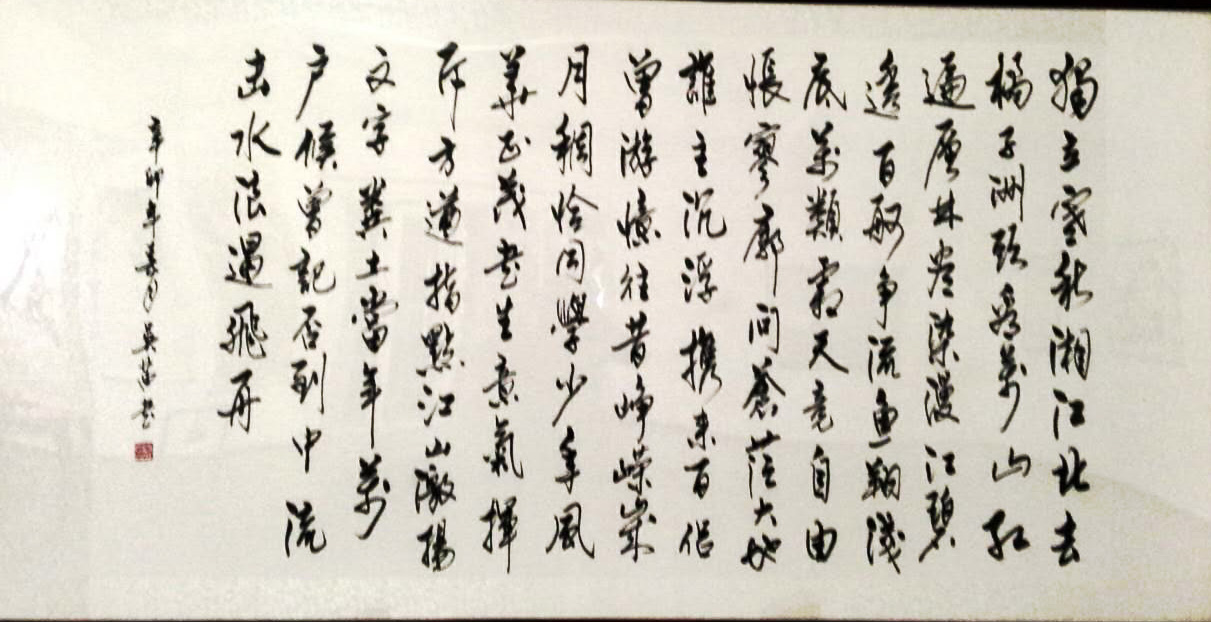 獨立寒秋湘江北去
橘子洲頭看萬山紅
遍層林盡染漫江碧
透百舸争流魚翔淺
底萬類霜天竞自由
悵寥廓問蒼茫大地
誰主沉浮携來百侣
曾游憶往昔崢嶸歲
月稠恰同學少年風
華正茂書生意氣揮
斥方遒指點江山激揚
文字糞土當年萬
户候曾記否到中流
击水浪遏飛舟
辛卯年春月吴書